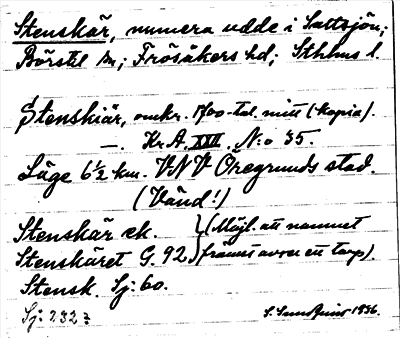 Stenskär, numera udde i Sattsjön;
Börstil sn; Frösåkers hd; Sthlms l.
Stenskiär, omkr. 1700-tal. mitt (kopia).
—. Kr. A. XXII. N:o 35.
Läge 6½ km. VNV Öregrunds stad.
(Vänd!)
Stenskär ek. } (Möjl. att namnet
Stenskäret G. 92 framst avser ett torp).
Stensk. Sj: 60.
Sj: 232
S. 1936.